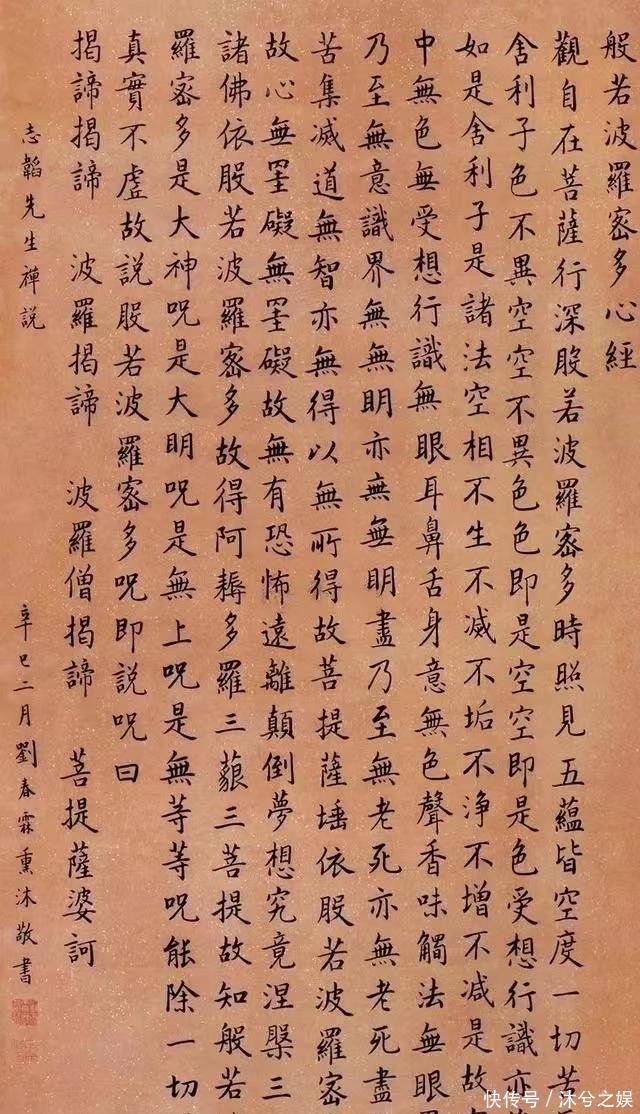 般若波羅密多心經
觀自在菩薩行深般若波羅密多時照見五蘊皆空度一切苦
舍利子色不異空空不異色色即是空空即是色受想行識亦
如是舍利子是諸法空相不生不滅不垢不淨不增不減是故
中無色無受想行識無眼耳鼻舌身意無色聲香味觸法無眼
乃至無意識界無無明亦無無明盡乃至無老死亦無老死盡
苦集滅道無智亦無得以無所得故菩提薩埵依般若波羅密
故心無罣礙無罣礙故無有恐怖遠離顛倒夢想究竟涅槃三
諸佛依般若波羅密多故得阿耨多羅三藐三菩提故知般若
羅密多是大神咒是大明咒是無上咒是無等等咒能除一切
真實不虛故說般若波羅密多咒即說咒曰
揭諦揭諦 波羅揭諦 波羅僧揭諦 菩提薩婆訶
志韜先生禪說
辛巳二月劉春霖熏沐敬書
快传号/沐兮之娱